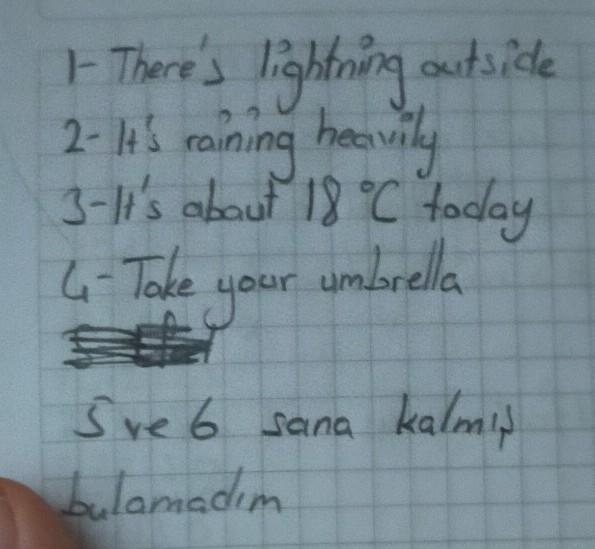 1- There's lightning outside
2- It's raining heavily
3- It's about 18 °C today
4- Take your umbrella
5 ve 6 sana kalmış
bulamadım